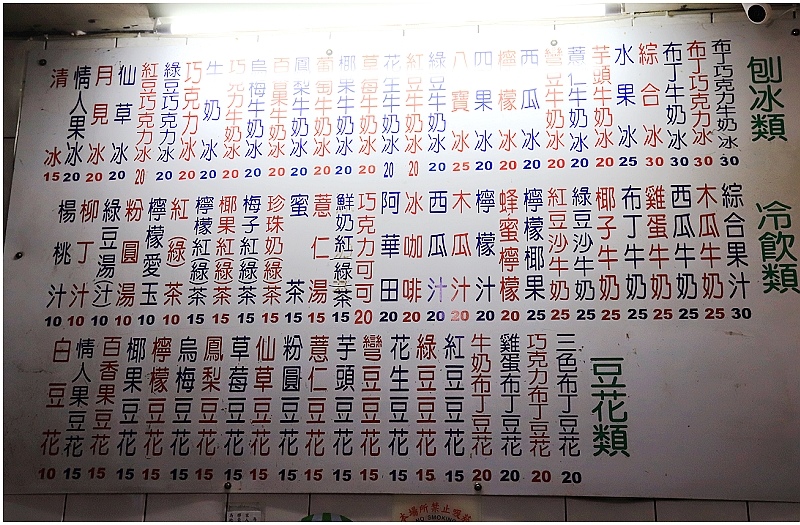 刨冰類
布丁巧克力牛奶冰 30
布丁巧克力冰 30
布丁牛奶冰 30
綜合冰 30
水果冰 25
芋頭牛奶冰 20
薏仁牛奶冰 20
彎豆牛奶冰 20
西瓜冰 20
檸檬冰 20
四果冰 20
八寶冰 25
綠豆牛奶冰 20
紅豆牛奶冰 20
花生牛奶冰 20
草莓牛奶冰 20
椰果牛奶冰 20
葡萄牛奶冰 20
鳳梨牛奶冰 20
百香果牛奶冰 20
烏梅牛奶冰 20
巧克力牛奶冰 20
牛奶冰 20
巧克力冰 20
綠豆巧克力冰 20
紅豆巧克力冰 20
仙草冰 20
月見冰 20
情人果冰 20
清冰 15
冷飲類
綜合果汁 30
木瓜牛奶 25
西瓜牛奶 25
雞蛋牛奶 25
布丁牛奶 25
椰子牛奶 25
綠豆沙牛奶 25
紅豆沙牛奶 25
檸檬椰果 25
蜂蜜檸檬 20
檸檬汁 20
木瓜汁 20
西瓜汁 20
冰咖啡 20
阿華田 20
巧克力可可 20
鮮奶紅(綠)茶 15
薏仁湯 15
蜜茶 15
珍珠奶(綠)茶 15
梅子紅(綠)茶 15
椰果紅(綠)茶 15
檸檬紅(綠)茶 15
紅(綠)茶 10
檸檬愛玉 10
粉圓湯 10
綠豆湯(汁) 10
柳丁汁 10
楊桃汁 10
豆花類
三色布丁豆花 20
巧克力布丁豆花 20
雞蛋布丁豆花 20
牛奶布丁豆花 20
紅豆豆花 15
綠豆豆花 15
花生豆花 15
彎豆豆花 15
芋頭豆花 15
薏仁豆花 15
粉圓豆花 15
仙草豆花 15
草莓豆花 15
鳳梨豆花 15
烏梅豆花 15
檸檬豆花 15
椰果豆花 15
百香果豆花 15
情人果豆花 15
白豆花 10
本場所禁止吸菸
NO SMOKING